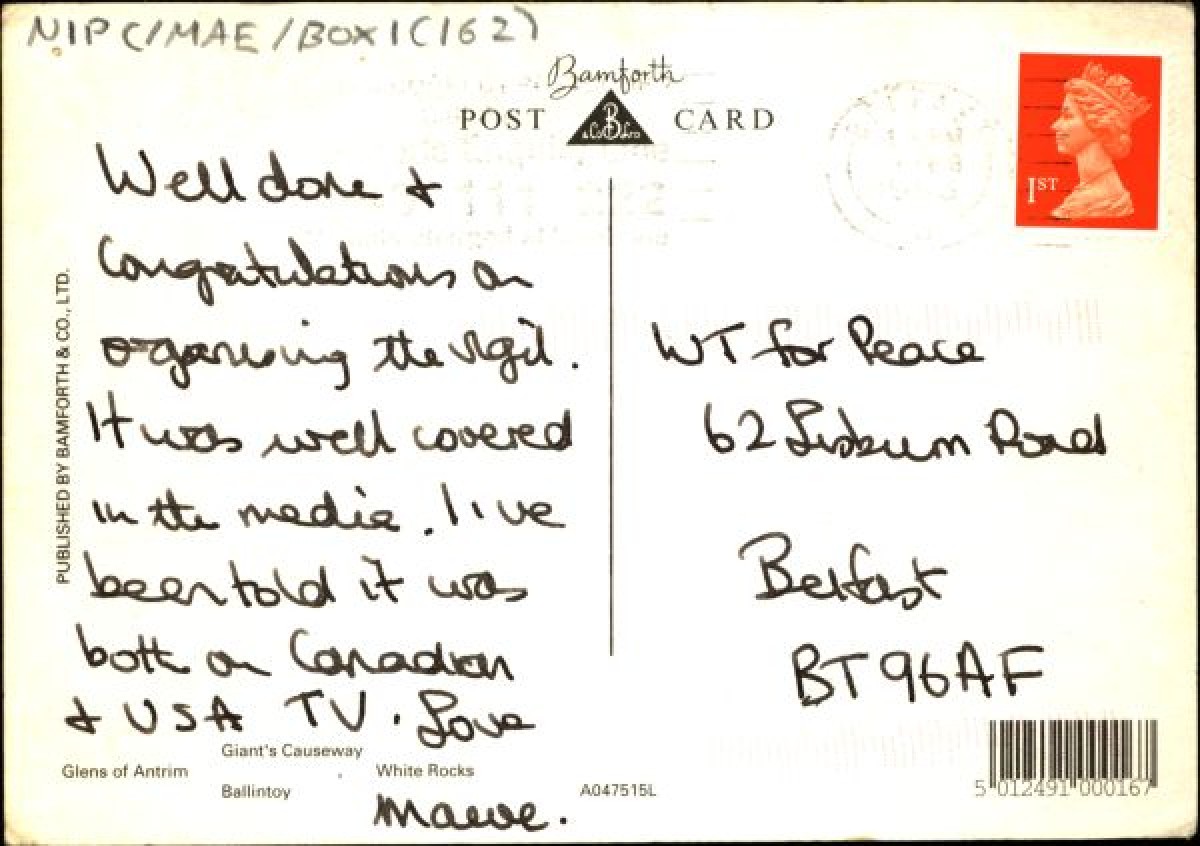 NIPC/MAE/BOX1(162)
Bamforth
POST CARD
B
& Co Ltd
1ST
Well done &
Congratulations on
organising the vigil.
It was well covered
in the media. I've
been told it was
both on Canadian
& USA TV. Love
Maeve.
WT for Peace
62 Lisburn Road
Belfast
BT96AF
PUBLISHED BY BAMFORTH & CO., LTD.
Giant's Causeway
Glens of Antrim
White Rocks
Ballintoy
A047515L
5 012491 000167